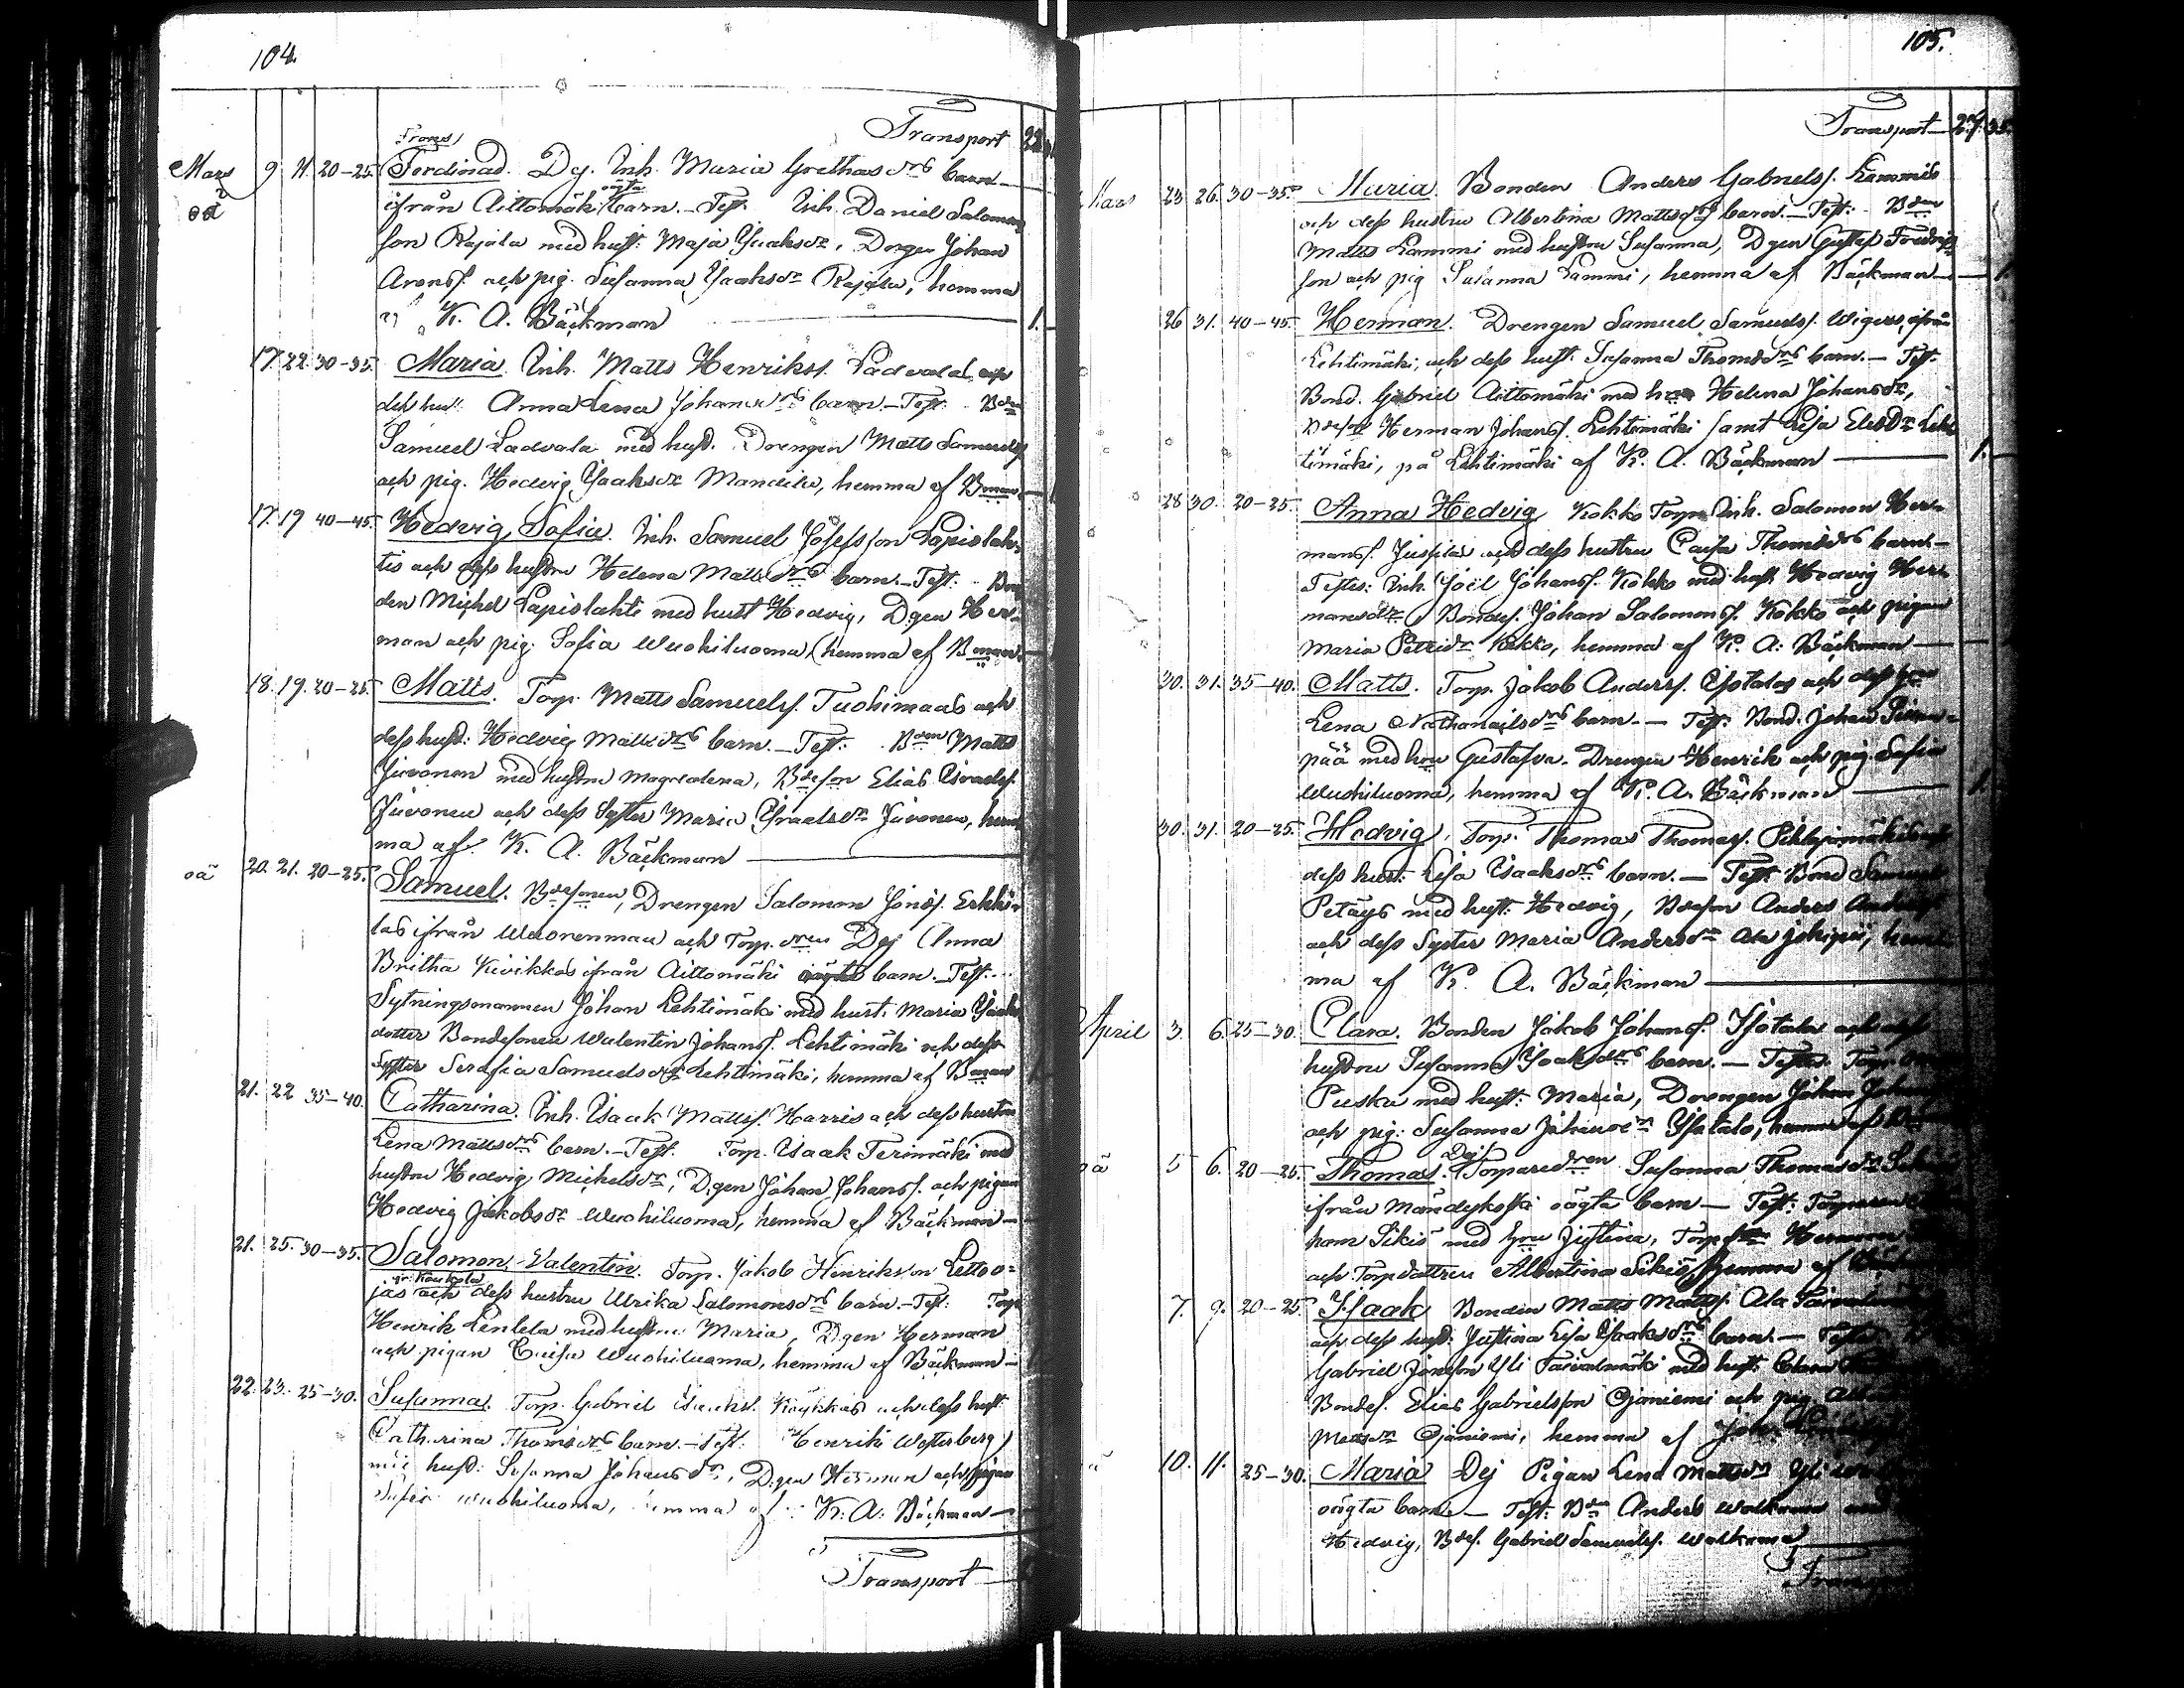 104.
Transport 22
Frans
Mars 9 11. 20-25. Ferdinad. Dej. Inh. Maria Grethas drs barn
oä ifrån Aittomäki oägta barn.- Test. Inh. Daniel Salomons
son Rajala med hust: Maja Isaksdr, Drgen Johan
Aronss. och pig. Susanna Isaksdr Rajala, hemma
af K. A. Bäckman 1.
17. 22. 30-35. Maria. Inh. Matts Henrikss. Ladvalas och
dess hus: Anna Lena Johansdrs barn.- Test. Bden
Samuel Ladvala med hust. Drengen Matts Samuelss
och pig. Hedvig Isaksdr Mandila, hemma af Bman.
17. 19 40-45. Hedvig, Sofia. Inh. Samuel Josefsson Lapislah-
tis och dess hustru Helena Mattsdrs barn.- Test. Bon
den Michel Lapislahti med hust Hedvig, Dgen Her-
man och pig. Sofia Wuohiluoma, (hemma) af Bman.
18. 19. 20-25. Matts. Torp. Matts Samuelss. Tuohimaas och
dess hust: Hedvig Mattsdrs barn.- Test: Bden Matts
Jivonen med hustru Magdalena, Bdeson Elias Israelss.
Jivonen och dess Syster Maria Israelsdr Jivonen, hem
ma af K. A. Bäckman
oä 20. 21. 20-25. Samuel. Bdesonen, Drengen Salomon Jonäs. Erkki-
las ifrån Wuorenmaa och Torp.dren Dej Anna
Britha Kivikkos ifrån Aittomäki oägta barn.- Test.
Sytningsmannen Johan Lehtimäki med hust. Maria Isaks
dotter Bondesonen Walentin Johanss. Lehtimäki och dess
Syster Serafia Samuelsdr Lehtimäki, hemma af Bman
21. 22 35-40. Catharina. Inh. Isaak Mattss. Harris och dess hustru
Lena Mattsdrs barn.- Test. Torp. Isaak Terimäki med
hustru Hedvig Michelsdr, Dgen Johan Johanss. och pigan
Hedvig Jakobsdr Wuohiluoma, hemma af Bäckman
21. 25. 30-35. Salomon, Valentin. Torp. Jakob Henriksson Letto o-
jas och dess hustru Ulrika Salomonsdrs barn.- Test: Torp
Henrik Lenlela med hustru Maria, Dgen Herman
och pigan Caisa Wuohiluoma, hemma af Bäckman
22. 23. 25-30. Susanna. Torp. Gabriel Isaaks. Köykkäs och dess hust
Catharina Thomsdrs barn.- Test: Henrik Westerberg
med hust: Susanna Johansdr, Dgen Herman och pigan
Sofia Wuohiluoma, hemma af K: A: Bäckman
Transport
105.
Transport 27. 35.
Mars 23 26. 30-35. Maria. Bonden Anders Gabrielss. Lammis
och dess hustru Albertina Mattsdrs barn.- Test: Bden
Matts Lammi med hustru Susanna, Dgen Gustaf Fredriks
son och pig Susanna Lammi, hemma af Bäckman 1.
26 31. 40-45. Herman. Drengen Samuel Samuelss. Wigers ifrån
Lehtimäki, och dess hust. Susanna Thomsdrs barn.- Test.
Bond. Gabriel Aittomäki med hru Helena Johansdr,
Bdeson Herman Johanss. Lehtimäki samt Lisa Eliasdr Leh
timäki, på Lehtimäki af K. A. Bäckman 1.
28 30. 20-25. Anna Hedvig Kokko Torp Inh. Salomon Her-
manss. Jussilas och dess hustru Caisa Thomsdrs barn.-
Testes: Inh. Joel Johanss. Kokko med hust Hedvig Her-
mansdr Bondes. Johan Salomonss. Kokko och pigan
Maria Petrisdr Kokko, hemma af K. A. Bäckman
30. 31. 35-40. Matts. Torp. Jakob Anderss. Isotalos och dess hru
Lena Nathanaelsdrs barn.- Test: Bond. Johan
pää med hru Gustafva. Drengen Henrik och pig. Sofia
Wuohiluoma, hemma af K. A. Bäckman 1.
30. 31. 20-25. Hedvig. Torp. Thomas Thomass. Pihlajamäkis
dess hust: Lisa Isaksdrs barn.- Test Bond Samuel
Petäys med hust: Hedvig, Bdeson Anders Anderss
och dess Syster Maria Andersdr Ala Johipii, hem
ma af K. A. Bäckman
April 3. 6. 25-30. Clara. Bonden Jakob Johanss. Isotalu och
hustru Susanna Isaksdrs barn.- Testes. Torp
Puska med hust: Maria, Drengen Johan
och pig: Susanna Johansdr Isotalo, hemma af
oä 5 6. 20-25. Thomas. Dej Torparedren Susanna Thomasdr
ifrån Mändykoski oägta barn - Test: Torparen
ham Sikiö med hru Justina, Torp Herman
och Torpdottren Albertina Sikiö, hemma af
7. 9. 20-25. Isaak Bonden Matts Mattss. Ala
och dess hust: Justina Lisa Isaaksdrs barn.- Testes
Gabriel Jonsson Yli Paivalmäki med hust. Clara
Bondes. Elias Gabrielsson Ojaniemi och pig.
Mattsdr Ojaniemi, hemma af Joh.
10. 11. 25-30. Maria Dej Pigan Lena Mattsdr Yli
oägta barn - Test: Bden Anders Walkama
Hedvig, Bdes. Gabriel Samuelss. Walkama
Transport